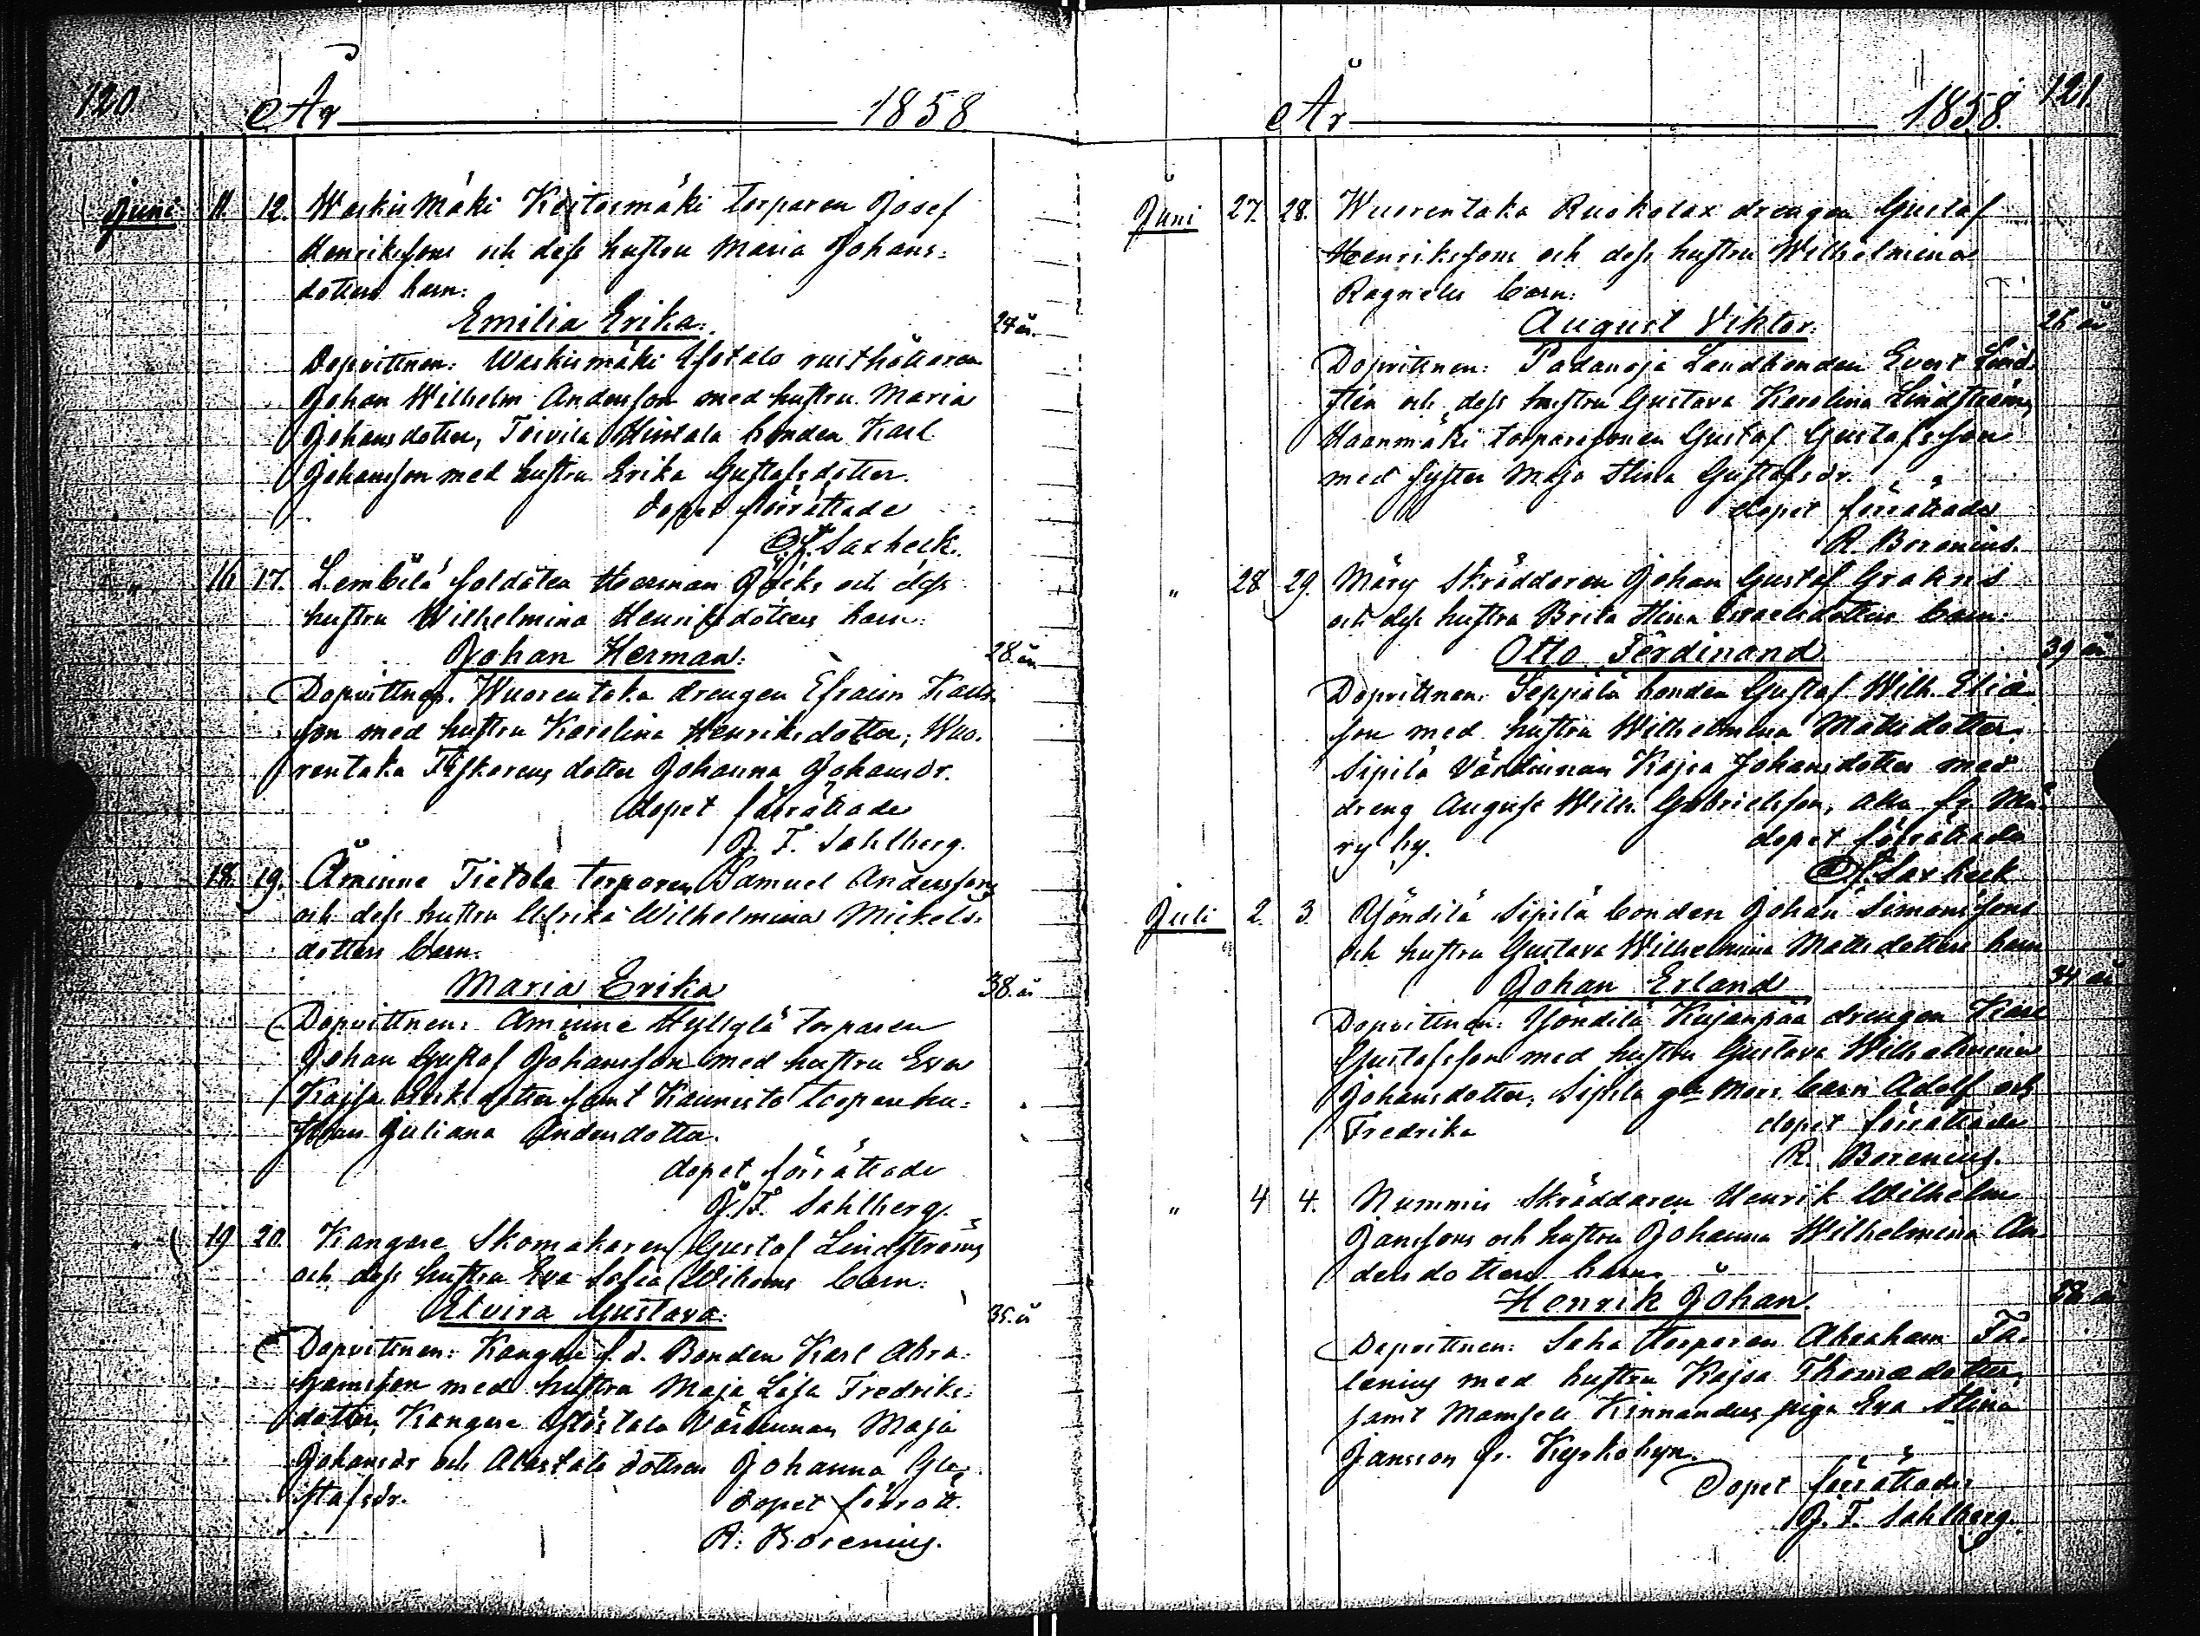 120. År 1858
Juni 11. 12. Waskis Mäki Keitosmäki torparen Josef
Henrikssons och dess hustru Maria Johans-
dotters barn:
Emilia Erika. 24 år.
Dopvittnen: Waskismäki rusthållaren
Johan Wilhelm Andersson med hustru Maria
Johansdotter, Toivila Hintala bonden Karl
Johansson med hustru Erika Gustafsdotter.
dopet förrättade
Saxbeck.
" 16. 17. Lembilä soldaten Herman och dess
hustru Wilhelmina Henriksdotters barn:
Johan Herman. 28. år
Dopvittnen. Wuorentaka drengen Efraim Karls-
son med hustru Karolina Henriksdotter, Wuo-
rentaka Fiskarens dotter Johanna Johansdr.
dopet förrättade
J. F. Sahlberg.
" 18. 19. Åminne Tietola torparen Samuel Anderssons
och dess hustru Ulrika Wilhelmina Mickels-
dotters barn.
Maria Erika 38. år
Dopvittnen: Åminne Hyllylä torparen
Johan Gustaf Johansson med hustru Eva
Kajsa Eriksdotter samt Kaunisto torparehu-
strun Juliana Andersdotter.
dopet förrättade
J. F. Sahlberg.
" 19 20. Kangare Skomakaren Gustaf Lindströms
och dess hustru Eva Sofia barn:
Elvira Gustava. 35. år
Dopvittnen: Kangare f. d. Bonden Karl Abra-
hamsson med hustru Maja Lisa Fredriks-
dotter, Kangare värdinnan Maja
Johansdr och Alastalo dottren Johanna Gu-
stafsdr. dopet förrätt.
R. Borenius.
År 1858. 121.
Juni 27. 28. Wuorentaka Ruokolax drengen Gustaf
Henrikssons och dess hustru Wilhelmina
Ragnells barn:
August Viktor. 26 år
Dopvittnen: Padanoja Landbonden Evert Lind-
stén och dess hustru Gustava Karolina Lindström,
Haanmäki torparesonen Gustaf Gustafsson
med syster Maja Stina Gustafsdr.
dopet förrättade
R. Borenius.
" 28 29. Märy Skräddaren Johan Gustaf
och dess hustru Brita Stina Israelsdotters barn:
Otto Ferdinand 39 år
Dopvittnen: Seppälä bonden Gustaf Wilh. Elia-
son med hustru Wilhelmina Mattsdotter,
Sipilä Värdinnan Kajsa Johansdotter med
dreng August Wilh. Gabrielsson, alla fr. Mä-
ry by. dopet förrättade
Saxbeck
Juli 2. 3. Nöndilä Sipilä bonden Johan Simonssons
och hustru Gustava Wilhelmina Mattsdotters barn
Johan Erland 34 år
Dopvittnen: Kujanpää drengen Karl
Gustafsson med hustru Gustava Wilhelmina
Johansdotter, Sipilä barn Adolf och
Fredrika dopet förrättade
R. Borenius.
" 4 4. Nummis Skräddaren Henrik Wilhelm
Janssons och hustru Johanna Wilhelmina An-
dersdotters barn
Henrik Johan. 28 år
Dopvittnen: Saha torparen Abraham Fa-
lenius med hustru Kajsa Thomasdotter,
samt Mamsell Kinnanders piga Eva Stina
Jansson fr. Kyrkobyn.
Dopet förrättade
J. F. Sahlberg.